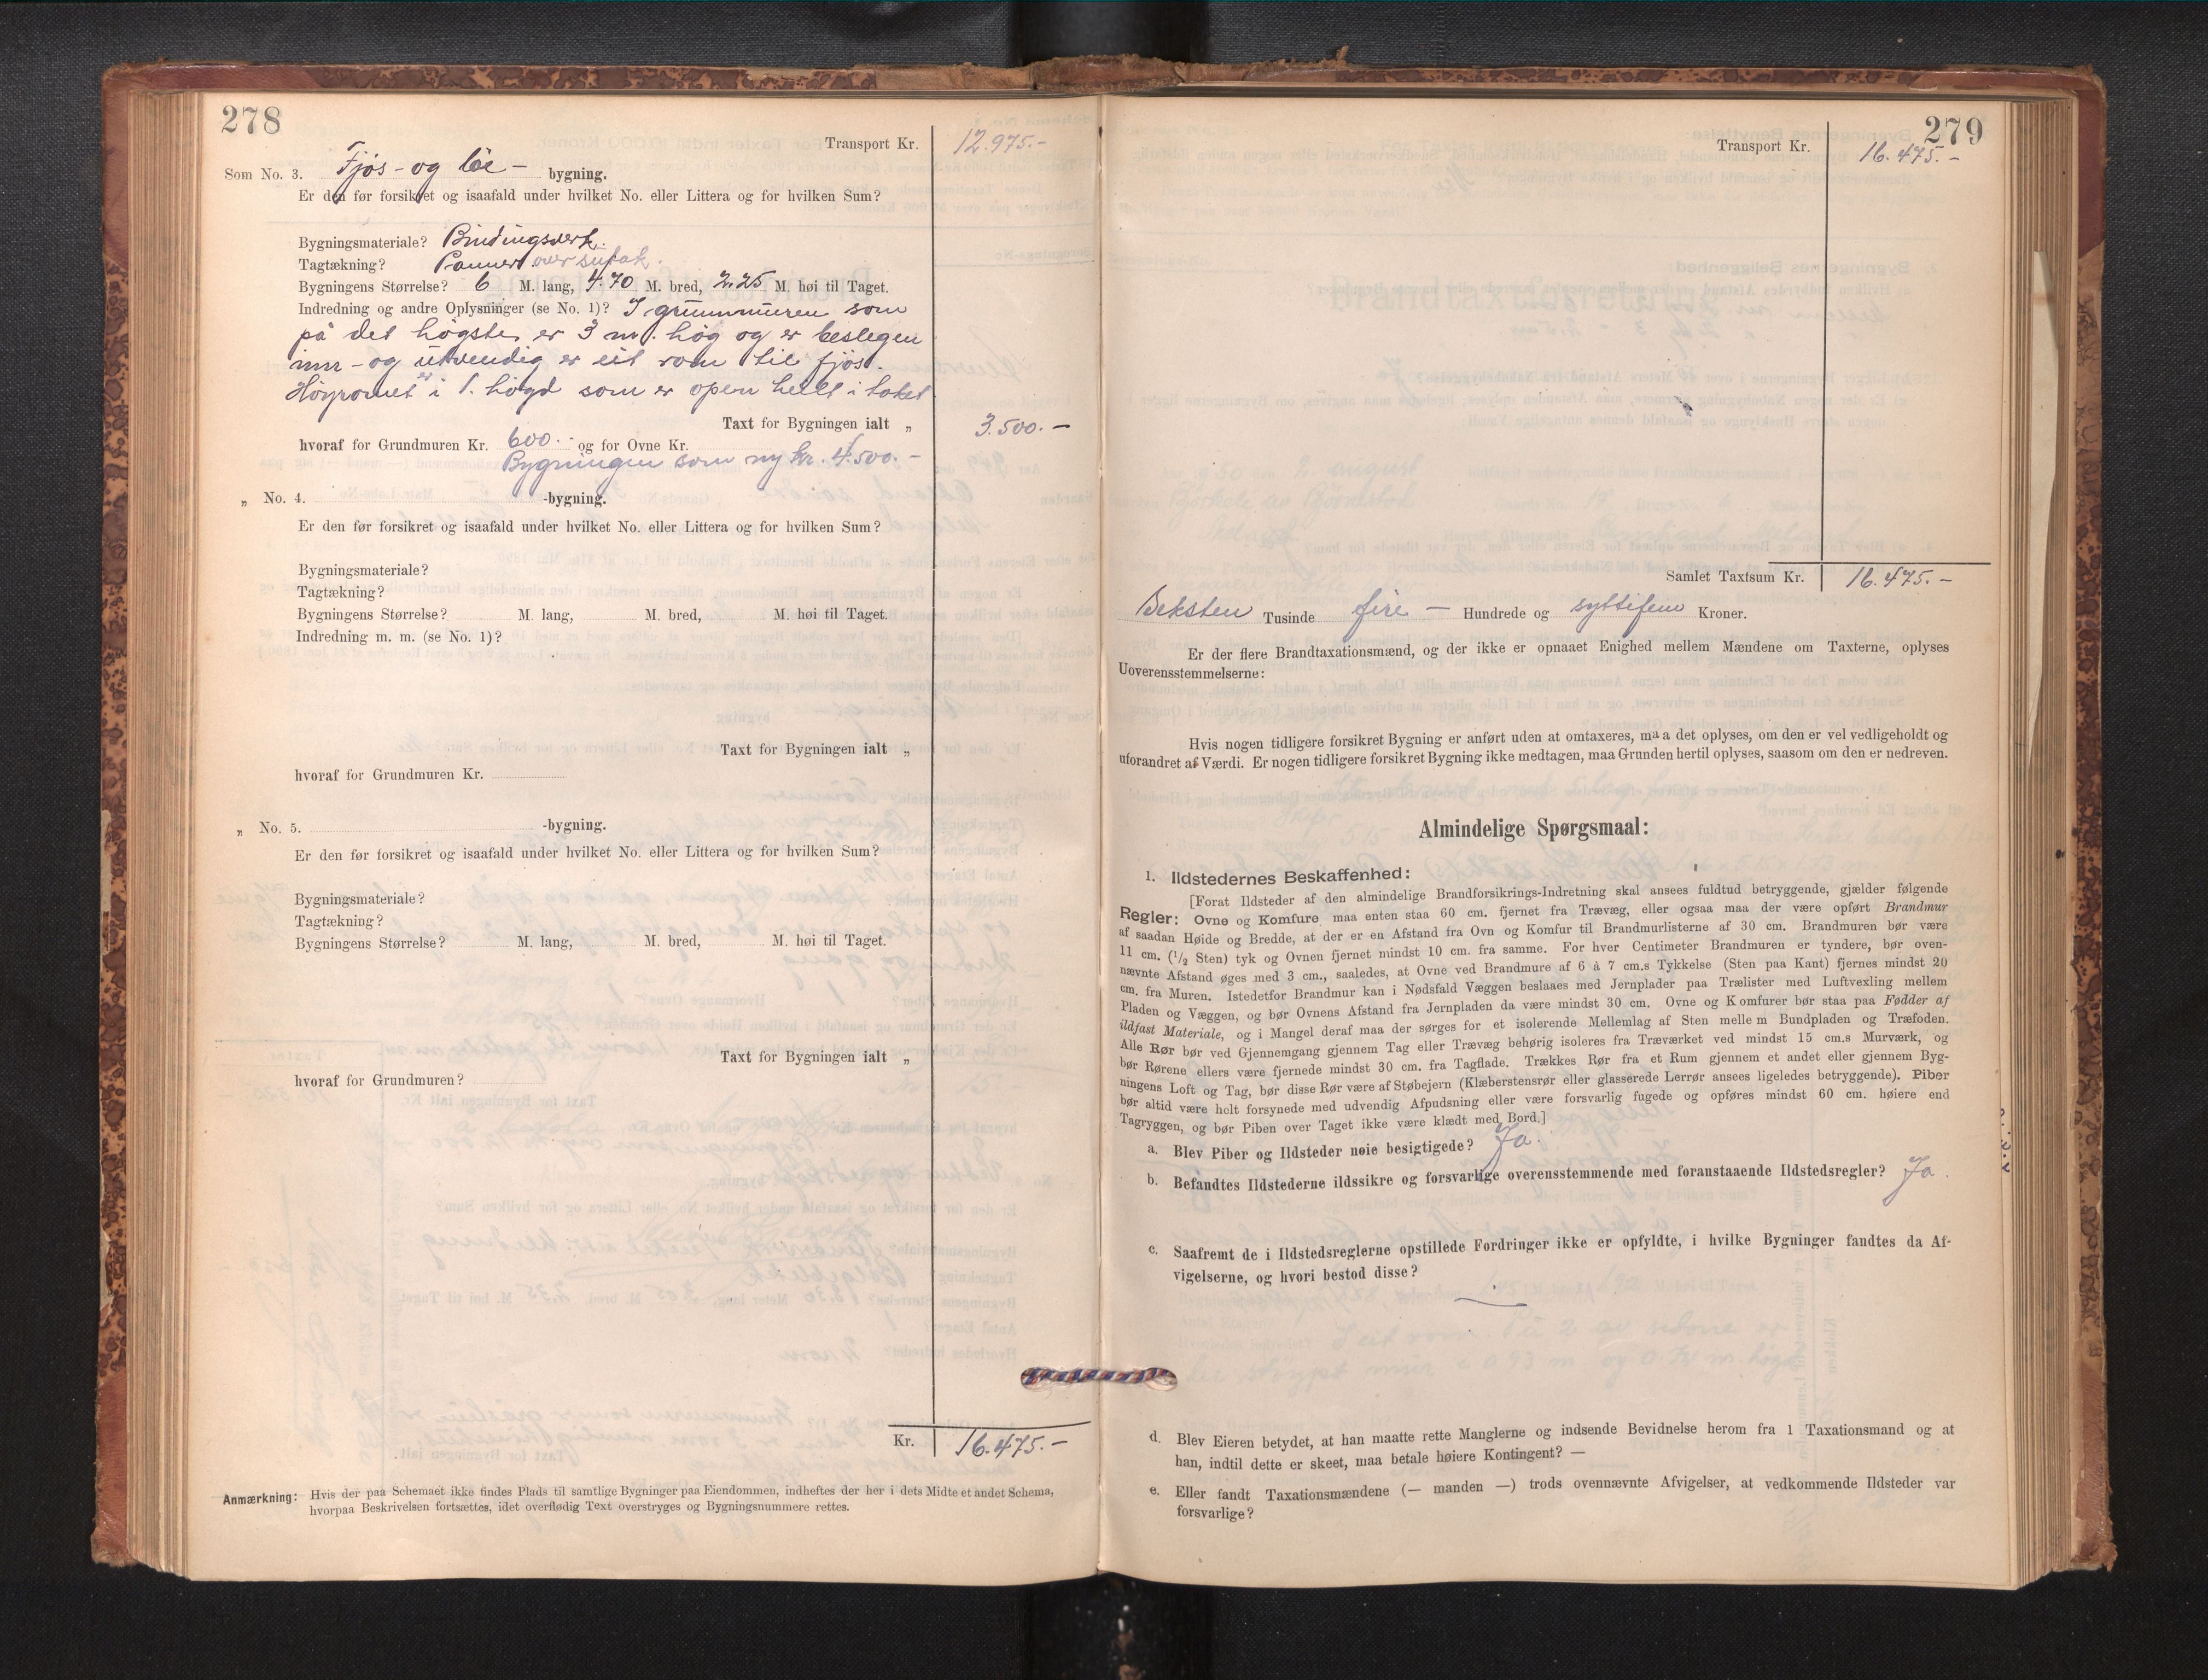 278
Transport Kr. 12.975.-
Som No. 3. Fjøs - og löe - bygning.
Er den før forsikret og isaafald under hvilket No. eller Littera og for hvilken Sum?
Bygningsmateriale? Bindingsverk.
Tagtækning? Panner over sutak.
Bygningens Størrelse? 6 M. lang, 4.70 M. bred, 2.25 M. høi til Taget.
Indredning og andre Oplysninger (se No. 1)? I grunnmuren som
på det högste er 3 m. hög og er beslegen
inn - og utvendig er eit rom til fjøs.
Höyromet er i 1. högd som er open heilt i taket
Taxt for Bygningen ialt „ 3.500.-
hvoraf for Grundmuren Kr. 600.- og for Ovne Kr.
Bygningen som ny kr. 4.500.-
„ No. 4. -bygning.
Er den før forsikret og isaafald under hvilket No. eller Littera og for hvilken Sum?
Bygningsmateriale?
Tagtækning?
Bygningens Størrelse? M. lang, M. bred, M. høi til Taget.
Indredning m. m. (se No. 1)?
Taxt for Bygningen ialt „
hvoraf for Grundmuren Kr.
„ No. 5. -bygning.
Er den før forsikret og isaafald under hvilket No. eller Littera og for hvilken Sum?
Bygningsmateriale?
Tagtækning?
Bygningens Størrelse? M. lang, M. bred, M. høi til Taget.
Taxt for Bygningen ialt „
hvoraf for Grundmuren?
Kr. 16.475.-
Anmærkning: Hvis der paa Schemaet ikke findes Plads til samtlige Bygninger paa Eiendommen, indheftes der her i dets Midte et andet Schema,
hvorpaa Beskrivelsen fortsættes, idet overflødig Text overstryges og Bygningsnummere rettes.
279
Transport Kr. 16.475.-
Samlet Taxtsum Kr. 16.475.-
Seksten Tusinde fire - Hundrede og syttifem Kroner.
Er der flere Brandtaxationsmænd, og der ikke er opnaaet Enighed mellem Mændene om Taxterne, oplyses
Uoverensstemmelserne:
Hvis nogen tidligere forsikret Bygning er anført uden at omtaxeres, maa det oplyses, om den er vel vedligeholdt og
uforandret af Værdi. Er nogen tidligere forsikret Bygning ikke medtagen, maa Grunden hertil oplyses, saasom om den er nedreven.
Almindelige Spørgsmaal:
1. Ildstedernes Beskaffenhed:
[Forat Ildsteder af den almindelige Brandforsikrings-Indretning skal ansees fuldtud betryggende, gjælder følgende
Regler: Ovne og Komfure maa enten staa 60 cm. fjernet fra Trævæg, eller ogsaa maa der være opført Brandmur
af saadan Høide og Bredde, at der er en Afstand fra Ovn og Komfur til Brandmurlisterne af 30 cm. Brandmuren bør være
11 cm. (½ Sten) tyk og Ovnen fjernet mindst 10 cm. fra samme. For hver Centimeter Brandmuren er tyndere, bør oven-
nævnte Afstand øges med 3 cm., saaledes, at Ovne ved Brandmure af 6 à 7 cm.s Tykkelse (Sten paa Kant) fjernes mindst 20
cm. fra Muren. Istedetfor Brandmur kan i Nødsfald Væggen beslaaes med Jernplader paa Trælister med Luftvexling mellem
Pladen og Væggen, og bør Ovnens Afstand fra Jernpladen da være mindst 30 cm. Ovne og Komfurer bør staa paa Fødder af
ildfast Materiale, og i Mangel deraf maa der sørges for et isolerende Mellemlag af Sten mellem Bundpladen og Træfoden.
Alle Rør bør ved Gjennemgang gjennem Tag eller Trævæg behørig isoleres fra Træværket ved mindst 15 cm.s Murværk, og
bør Rørene ellers være fjernede mindst 30 cm. fra Tagflade. Trækkes Rør fra et Rum gjennem et andet eller gjennem Byg-
ningens Loft og Tag, bør disse Rør være af Støbejern (Klæberstensrør eller glasserede Lerrør ansees ligeledes betryggende). Piber
bør altid være helt forsynede med udvendig Afpudsning eller være forsvarlig fugede og opføres mindst 60 cm. høiere end
Tagryggen, og bør Piben over Taget ikke være klædt med Bord.]
a. Blev Piber og Ildsteder nøie besigtigede? Ja.
b. Befandtes Ildstederne ildssikre og forsvarlige overensstemmende med foranstaaende Ildstedsregler? Ja.
c. Saafremt de i Ildstedsreglerne opstillede Fordringer ikke er opfyldte, i hvilke Bygninger fandtes da Af-
vigelserne, og hvori bestod disse?
d. Blev Eieren betydet, at han maatte rette Manglerne og indsende Bevidnelse herom fra 1 Taxationsmand og at
han, indtil dette er skeet, maa betale høiere Kontingent? —
e. Eller fandt Taxationsmændene (— manden —) trods ovennævnte Afvigelser, at vedkommende Ildsteder var
forsvarlige?